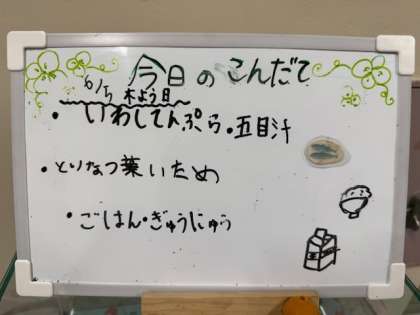 今日のこんだて
6/5 木よう日
・いわしてんぷら・五目汁
・とりなつ葉いため
・ごはん・ぎゅうにゅう